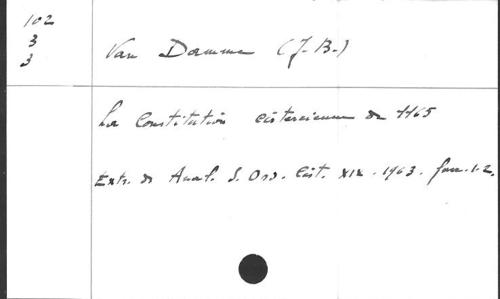 102
3
3
Van Damme (J. B.)
La Constitution cistercienne de 1165
Extr. de Anal. S. Ord. Cist. XIX. 1963. fasc. 1-2.